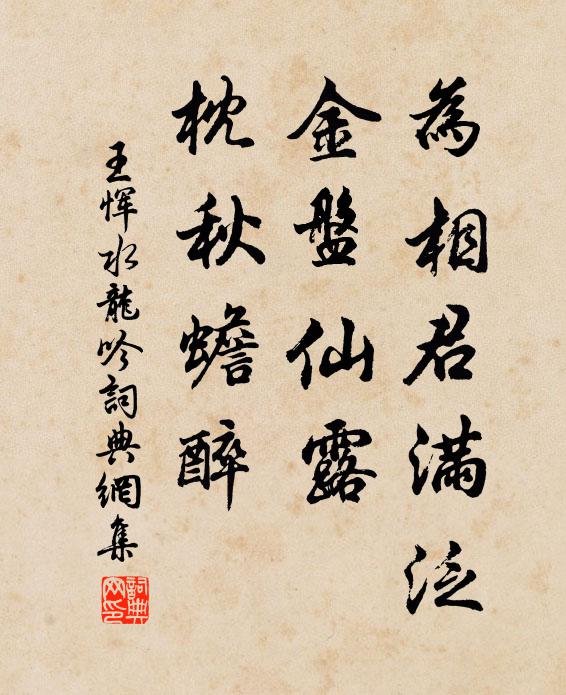 為相君滿泛
金盤仙露
枕秋蟾醉
王惲水龍吟詞典網集
詞典網印